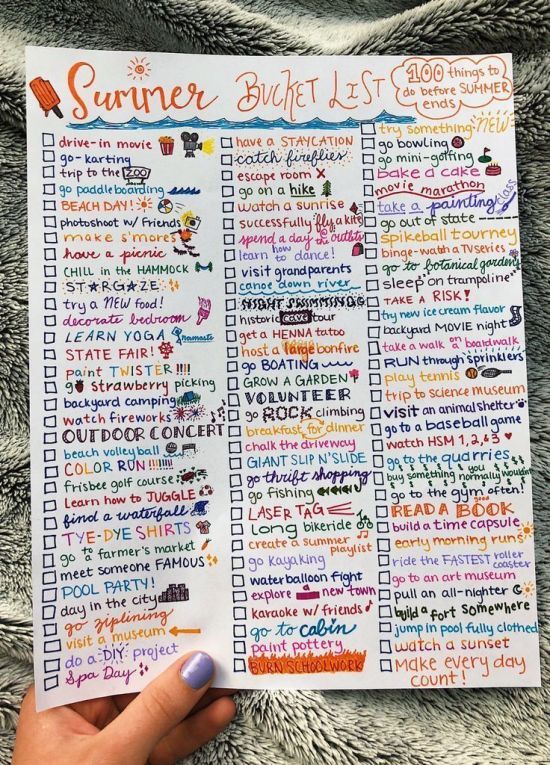 Summer Bucket List
100 things to do before SUMMER ends
drive-in movie
go-karting
trip to the ZOO
go paddleboarding
BEACH DAY!
photoshoot w/ friends
make s'mores
have a picnic
CHILL in the HAMMOCK
STARGAZE
try a NEW food!
decorate bedroom
LEARN YOGA namaste
STATE FAIR!
paint TWISTER !!!!
go strawberry picking
backyard camping
watch fireworks
OUTDOOR CONCERT
beach volleyball
COLOR RUN!!!!!!!
frisbee golf course
Learn how to JUGGLE
find a waterfall
TYE-DYE SHIRTS
go to a farmer's market
meet someone FAMOUS
POOL PARTY!
day in the city
go ziplining
visit a museum
do a DIY project
Spa Day
have a STAYCATION
catch fireflies
escape room X
go on a hike
watch a sunrise
successfully fly a kite
spend a day @ the outlets
learn how to dance!
visit grandparents
canoe down river
NIGHT SWIMMING
historic cave tour
get a HENNA tattoo
host a large bonfire
go BOATING
GROW A GARDEN
VOLUNTEER
go ROCK climbing
breakfast for dinner
chalk the driveway
GIANT SLIP N' SLIDE
go thrift shopping
go fishing
LASER TAG
long bikeride
create a summer playlist
go kayaking
waterballoon fight
explore a new town
karaoke w/ friends
go to cabin
paint pottery
BURN SCHOOLWORK
try something NEW
go bowling
go mini-golfing
bake a cake
movie marathon
take a painting class
go out of state
spikeball tourney
binge-watch a TV series
go to botanical gardens
sleep on trampoline
TAKE A RISK!
try new ice cream flavor
backyard MOVIE night
take a walk on boardwalk
RUN through sprinklers
play tennis
trip to science museum
visit an animal shelter
go to a baseball game
watch HSM 1, 2, & 3
go to the quarries
buy something you normally wouldn't
go to the gym often!
READ A BOOK
build a time capsule
early morning runs
ride the FASTEST roller coaster
go to an art museum
pull an all-nighter
build a fort somewhere
jump in pool fully clothed
watch a sunset
Make every day count!